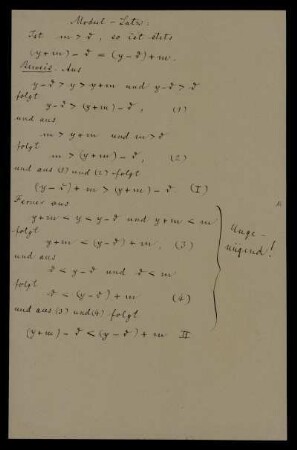 Modul-Satz.
Ist m > d, so ist stets
(y+m) - d = (y-d) + m.
Beweis. Aus
y-d > y > y+m und y-d > d
folgt
y-d > (y+m) - d, (1)
und aus
m > y+m und m > d
folgt
m > (y+m) - d, (2)
und aus (1) und (2) folgt
(y-d) + m > (y+m) - d (I)
Ferner aus
y+m < y < y-d und y+m < m
folgt
y+m < (y-d) + m. (3)
und aus
d < y-d und d < m
folgt
d < (y-d) + m (4)
und aus (3) und (4) folgt
(y+m) - d < (y-d) + m II
Unge-
nügend!